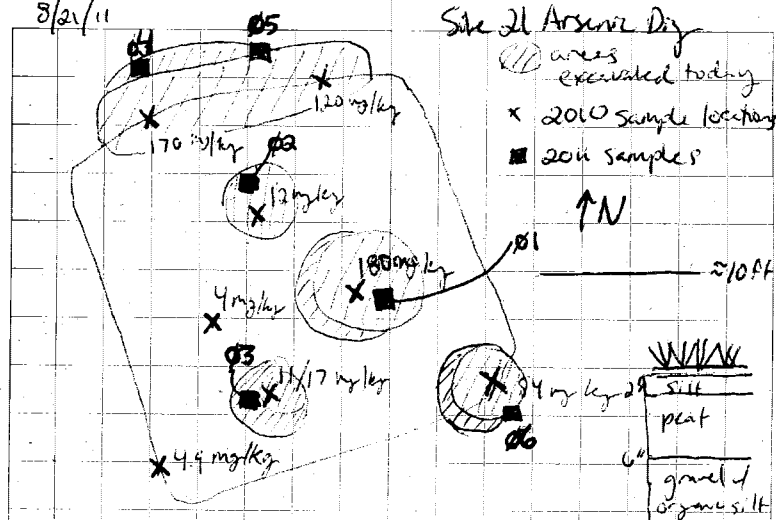 8/21/11
Site 21 Arsenic Dig
areas
excavated today
x 2010 sample locations
■ 2011 samples
↑N
≈10ft
04
05
120 mg/kg
170 mg/kg
02
12 mg/kg
01
180 mg/kg
4 mg/kg
03
11/17 mg/kg
mg/kg
06
4.9 mg/kg
2"
silt
peat
6"
gravel &
organic silt